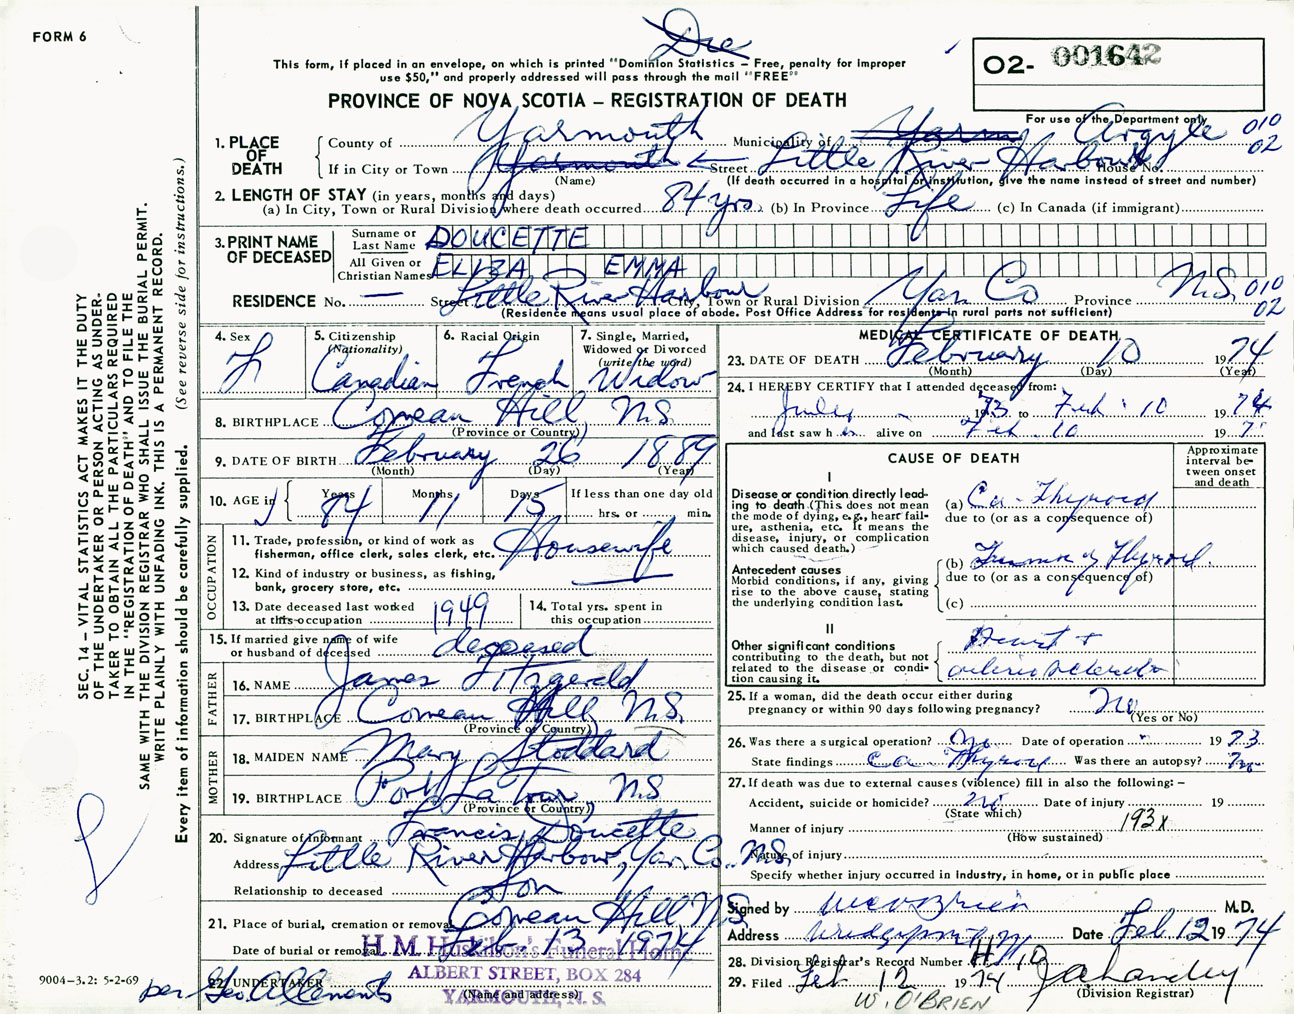 FORM 6
Die
This form, if placed in an envelope, on which is printed "Dominion Statistics – Free, penalty for improper
use $50," and properly addressed will pass through the mail "FREE"
PROVINCE OF NOVA SCOTIA – REGISTRATION OF DEATH
O2- 001642
For use of the Department only
1. PLACE OF DEATH County of Yarmouth Municipality of Yarm Argyle 010 02
If in City or Town Yarmouth Street Little River Harbour House No.
(Name) (If death occurred in a hospital or institution, give the name instead of street and number)
2. LENGTH OF STAY (in years, months and days)
(a) In City, Town or Rural Division where death occurred 84 yrs. (b) In Province Life (c) In Canada (if immigrant)
3. PRINT NAME OF DECEASED Surname or Last Name DOUCETTE
All Given or Christian Names ELIZA EMMA
RESIDENCE No. — Street Little River Harbour City, Town or Rural Division Yar. Co Province N.S. 010 02
(Residence means usual place of abode. Post Office Address for residents in rural parts not sufficient)
4. Sex 5. Citizenship (Nationality) 6. Racial Origin 7. Single, Married, Widowed or Divorced (write the word)
F Canadian French Widow
8. BIRTHPLACE Comeau Hill, N.S.
(Province or Country)
9. DATE OF BIRTH February 26 1889
(Month) (Day) (Year)
10. AGE in Years Months Days If less than one day old
84 11 15 hrs. or min.
OCCUPATION
11. Trade, profession, or kind of work as
fisherman, office clerk, sales clerk, etc. Housewife
12. Kind of industry or business, as fishing,
bank, grocery store, etc. —
13. Date deceased last worked
at this occupation 1949
14. Total yrs. spent in
this occupation
15. If married give name of wife
or husband of deceased deceased
FATHER
16. NAME James Fitzgerald
17. BIRTHPLACE Comeau Hill, N.S.
(Province or Country)
MOTHER
18. MAIDEN NAME Mary Stoddard
19. BIRTHPLACE Port La Tour N.S
(Province or Country)
20. Signature of informant Francis Doucette
Address Little River Harbour, Yar. Co. N.S.
Relationship to deceased Son
21. Place of burial, cremation or removal Comeau Hill N.S
Date of burial or removal Feb 13 1974
H. M. Huskilson's Funeral Home
ALBERT STREET, BOX 284
YARMOUTH, N. S.
22. UNDERTAKER per Geo. A Clements
(Name and address)
MEDICAL CERTIFICATE OF DEATH
23. DATE OF DEATH February 10 1974
(Month) (Day) (Year)
24. I HEREBY CERTIFY that I attended deceased from:
1973 to Feb. 10 1974
and last saw her alive on Feb. 10 197
CAUSE OF DEATH
Approximate interval between onset and death
I
Disease or condition directly lead-
ing to death (This does not mean
the mode of dying, e.g., heart fail-
ure, asthenia, etc. It means the
disease, injury, or complication
which caused death.)
(a) Ca - Thyroid
due to (or as a consequence of)
Antecedent causes
Morbid conditions, if any, giving
rise to the above cause, stating
the underlying condition last.
(b) Tumor of Thyroid.
due to (or as a consequence of)
(c)
II
Other significant conditions
contributing to the death, but not
related to the disease or condi-
tion causing it.
Heart +
25. If a woman, did the death occur either during
pregnancy or within 90 days following pregnancy? No
(Yes or No)
26. Was there a surgical operation? Date of operation 1973
State findings ca Thyroid Was there an autopsy? No
27. If death was due to external causes (violence) fill in also the following: –
Accident, suicide or homicide? no Date of injury 19
(State which)
Manner of injury 193x
(How sustained)
Nature of injury
Specify whether injury occurred in industry, in home, or in public place
Signed by W C O'Brien M.D.
Address Wedgeport NS Date Feb 12 1974
28. Division Registrar's Record Number
29. Filed Feb 12 1974
(Division Registrar)
W. O'BRIEN
SEC. 14 – VITAL STATISTICS ACT MAKES IT THE DUTY
OF THE UNDERTAKER OR PERSON ACTING AS UNDER-
TAKER TO OBTAIN ALL THE PARTICULARS REQUIRED
IN THE "REGISTRATION OF DEATH" AND TO FILE THE
SAME WITH THE DIVISION REGISTRAR WHO SHALL ISSUE THE BURIAL PERMIT.
WRITE PLAINLY WITH UNFADING INK. THIS IS A PERMANENT RECORD.
Every item of information should be carefully supplied. (See reverse side for instructions.)
9004-3.2: 5-2-69